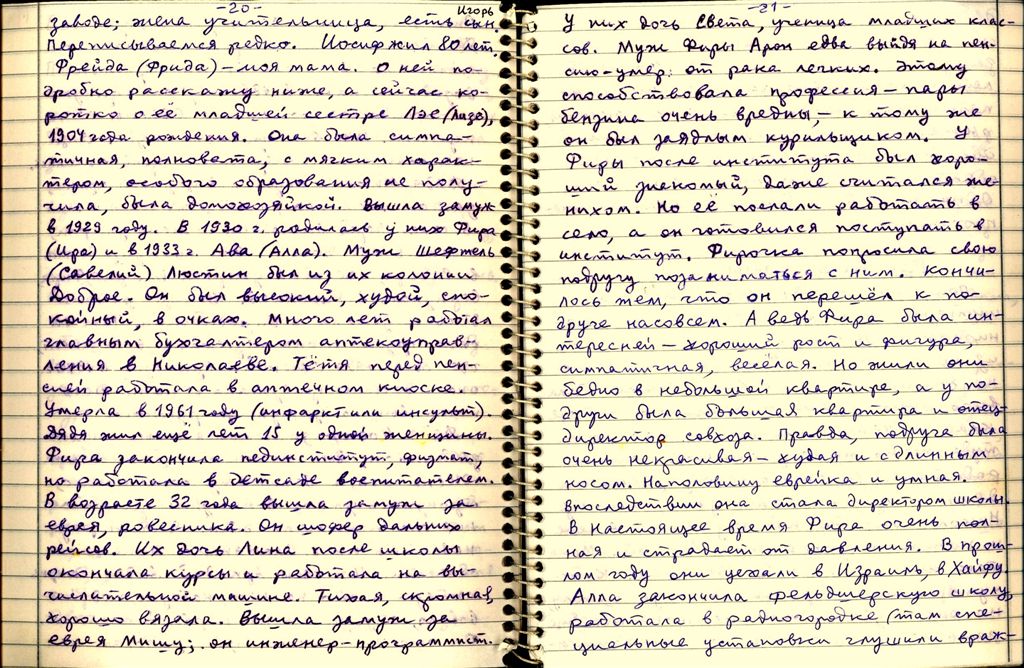 -20-
Игорь
заводе; жена учительница, есть сын.
Переписываемся редко. Иосиф жил 80 лет.
Фрейда (Фрида) – моя мама. О ней по-
дробно расскажу ниже, а сейчас ко-
ротко о её младшей сестре Лэе (Лизе),
1904 года рождения. Она была симпа-
тичная, полновата, с мягким харак-
тером, особого образования не полу-
чила, была домохозяйкой. Вышла замуж
в 1929 году. В 1930 г. родилась у них Фира
(Ира) и в 1933 г. Ава (Алла). Муж Шефтель
(Савелий) Люстин был из их колонии
Доброе. Он был высокий, худой, спо-
койный, в очках. Много лет работал
главным бухгалтером аптекоуправ-
ления в Николаеве. Тётя перед пен-
сией работала в аптечном киоске.
Умерла в 1961 году (инфаркт или инсульт).
Дядя жил ещё лет 15 у одной женщины.
Фира закончила пединститут, физмат,
но работала в детсаде воспитателем.
В возрасте 32 года вышла замуж за
еврея, ровесника. Он шофер дальних
рейсов. Их дочь Лина после школы
окончала курсы и работала на вы-
числительной машине. Тихая, скромная,
хорошо вязала. Вышла замуж за
еврея Мишу; он инженер-программист.
-21-
У них дочь Света, ученица младших клас-
сов. Муж Фиры Арон едва выйдя на пен-
сию – умер от рака легких. Этому
способствовала профессия – пары
бензина очень вредны, – к тому же
он был заядлым курильщиком. У
Фиры после института был хоро-
ший знакомый, даже считался же-
нихом. Но её послали работать в
село, а он готовился поступать в
институт. Фирочка попросила свою
подругу позаниматься с ним. Кончи-
лось тем, что он перешёл к по-
друге насовсем. А ведь Фира была ин-
тересней – хороший рост и фигура,
симпатичная, весёлая. Но жили они
бедно в небольшой квартире, а у по-
други была большая квартира и отец-
директор совхоза. Правда, подруга была
очень некрасивая – худая и с длинным
носом. Наполовину еврейка и умная.
Впоследствии она стала директором школы.
В настоящее время Фира очень пол-
ная и страдает от давления. В прош-
лом году они уехали в Израиль, в Хайфу.
Алла закончила фельдшерскую школу,
работала в радиогородке (там спе-
циальные установки глушили враж-